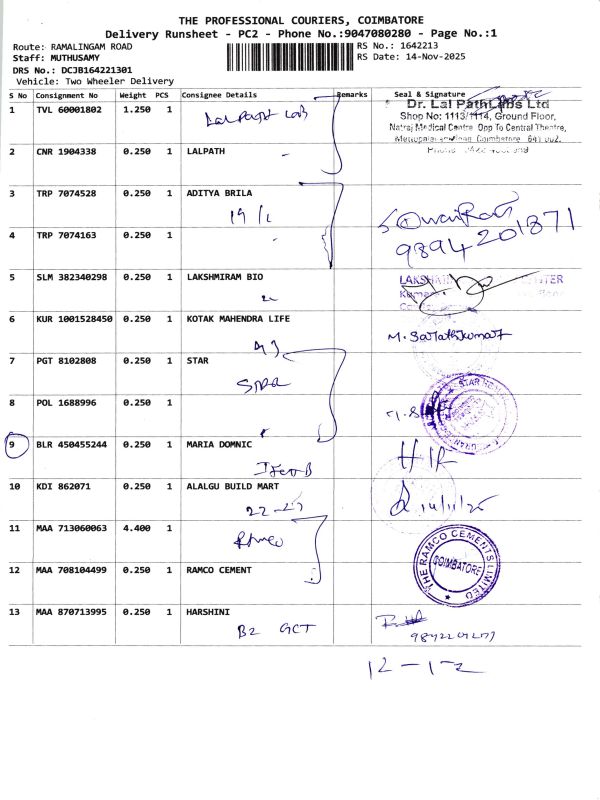 THE PROFESSIONAL COURIERS, COIMBATORE
Delivery Runsheet - PC2 - Phone No.:9047080280 - Page No.:1
Route: RAMALINGAM ROAD
RS No.: 1642213
Staff: MUTHUSAMY
RS Date: 14-Nov-2025
DRS No.: DCJB164221301
Vehicle: Two Wheeler Delivery
S No Consignment No Weight PCS Consignee Details Remarks Seal & Signature
1 TVL 60001802 1.250 1 Lalpath Lab
Dr. Lal PathLabs Ltd
Shop No: 1113/1114, Ground Floor,
Natraj Medical Centre Opp To Central Theatre,
Coimbatore 641 002.
2 CNR 1904338 0.250 1 LALPATH
3 TRP 7074528 0.250 1 ADITYA BRILA
19/1
4 TRP 7074163 0.250 1
9894201871
5 SLM 382340298 0.250 1 LAKSHMIRAM BIO
6 KUR 1001528450 0.250 1 KOTAK MAHENDRA LIFE
M. Sarathkumar
7 PGT 8102808 0.250 1 STAR
Star
8 POL 1688996 0.250 1
9 BLR 450455244 0.250 1 MARIA DOMNIC
10 KDI 862071 0.250 1 ALALGU BUILD MART
22-27
14/11/25
11 MAA 713060063 4.400 1
Ramco
12 MAA 708104499 0.250 1 RAMCO CEMENT
THE RAMCO CEMENTS LIMITED
COIMBATORE
13 MAA 870713995 0.250 1 HARSHINI
B2 GCT
12-1-2